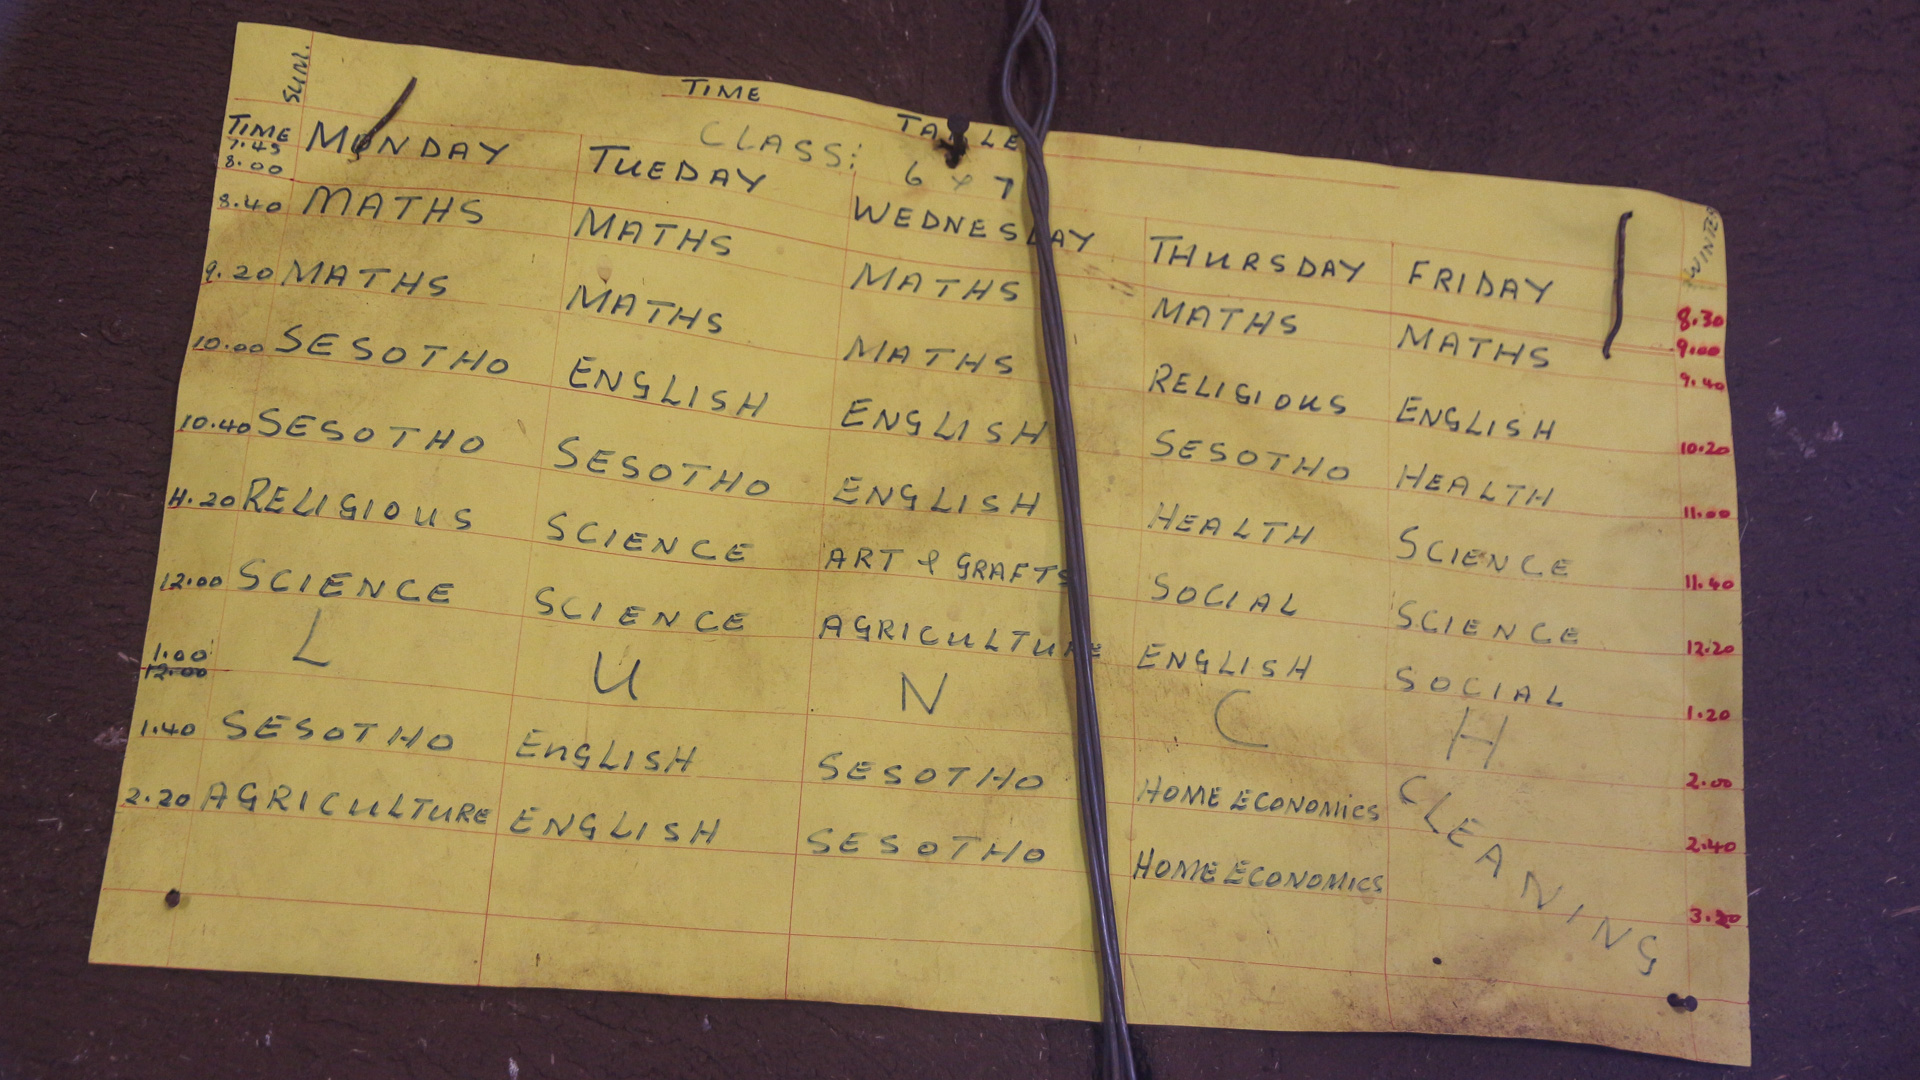 SUM. TIME TABLE WINTER
CLASS: 6 & 7
TIME MONDAY TUEDAY WEDNESDAY THURSDAY FRIDAY
7.45 8.30
8.00 9.00
8.40 MATHS MATHS MATHS MATHS MATHS 9.40
9.20 MATHS MATHS MATHS RELIGIOUS ENGLISH 10.20
10.00 SESOTHO ENGLISH ENGLISH SESOTHO HEALTH 11.00
10.40 SESOTHO SESOTHO ENGLISH HEALTH SCIENCE 11.40
11.20 RELIGIOUS SCIENCE ART & GRAFTS SOCIAL SCIENCE 12.20
12.00 SCIENCE SCIENCE AGRICULTURE ENGLISH SOCIAL 1.20
1.00 L U N C H 2.00
12.00
1.40 SESOTHO ENGLISH SESOTHO HOME ECONOMICS CLEANING 2.40
2.20 AGRICULTURE ENGLISH SESOTHO HOME ECONOMICS 3.20